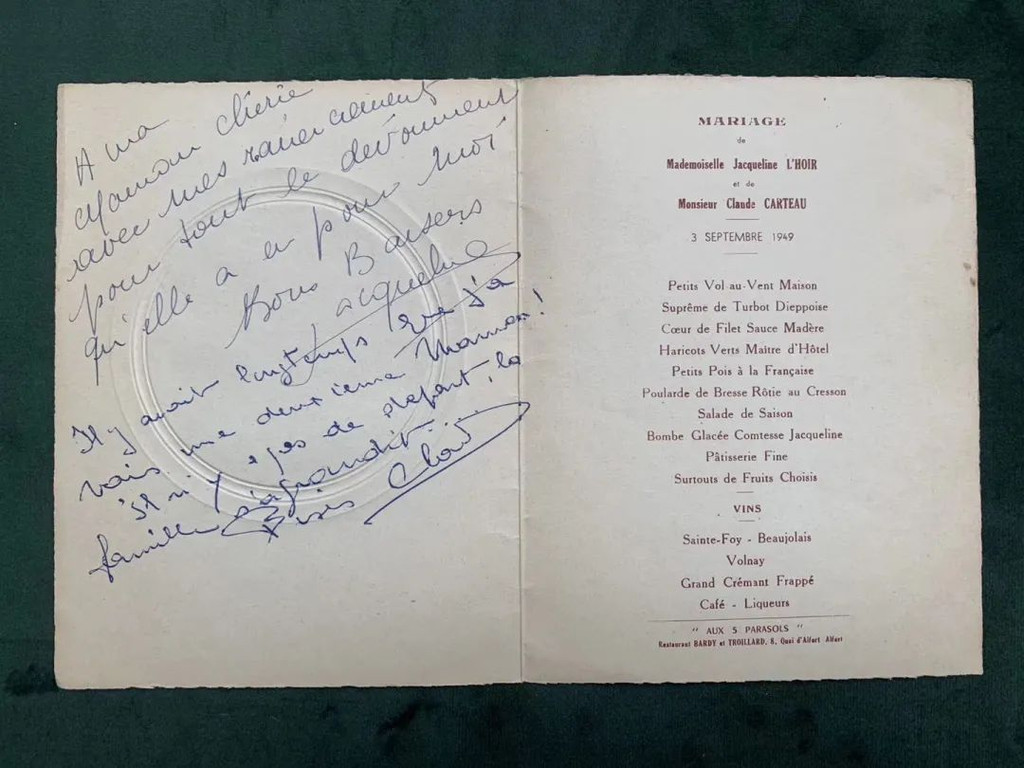 A ma
Maman chérie
avec mes remerciements
pour tout le dévouement
qu'elle a eu pour moi
Bons Baisers
Jacqueline
Il y avait longtemps que j'a
vais une deuxième Maman!
Il n'y a pas de départ, la
famille s'agrandit.
Bises
MARIAGE
de
Mademoiselle Jacqueline L'HOIR
et de
Monsieur Claude CARTEAU
3 SEPTEMBRE 1949
Petits Vol-au-Vent Maison
Suprême de Turbot Dieppoise
Cœur de Filet Sauce Madère
Haricots Verts Maître d'Hôtel
Petits Pois à la Française
Poularde de Bresse Rôtie au Cresson
Salade de Saison
Bombe Glacée Comtesse Jacqueline
Pâtisserie Fine
Surtouts de Fruits Choisis
VINS
Sainte-Foy - Beaujolais
Volnay
Grand Crémant Frappé
Café - Liqueurs
" AUX 5 PARASOLS "
Restaurant BARDY et TROILLARD, 8, Quai d'Alfort Alfort